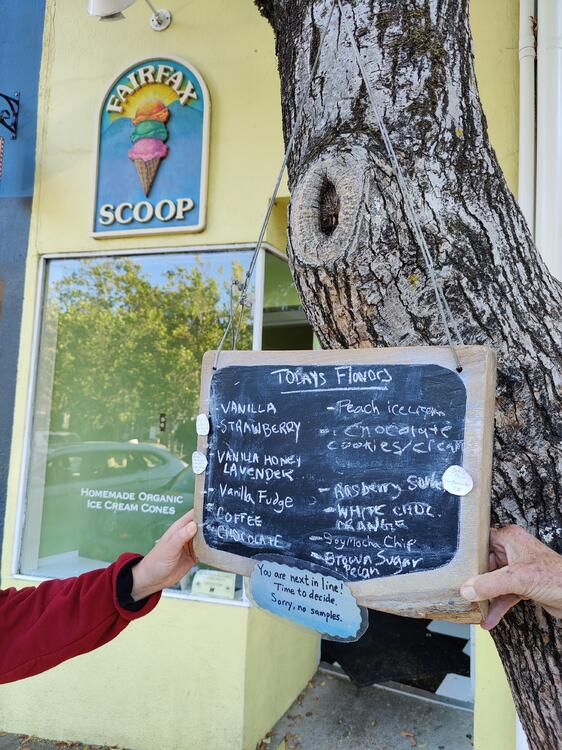 FAIRFAX
SCOOP
HOMEMADE ORGANIC
ICE CREAM CONES
TODAYS FLAVORS
-VANILLA
-STRAWBERRY
-VANILLA HONEY
LAVENDER
-Vanilla Fudge
COFFEE
-CHOCOLATE
-Peach icecream
-Chocolate
cookies/cream
-WHITE CHOC.
ORANGE
-Soy Mocha Chip
-Brown Sugar
Pecan
You are next in line!
Time to decide.
Sorry, no samples.